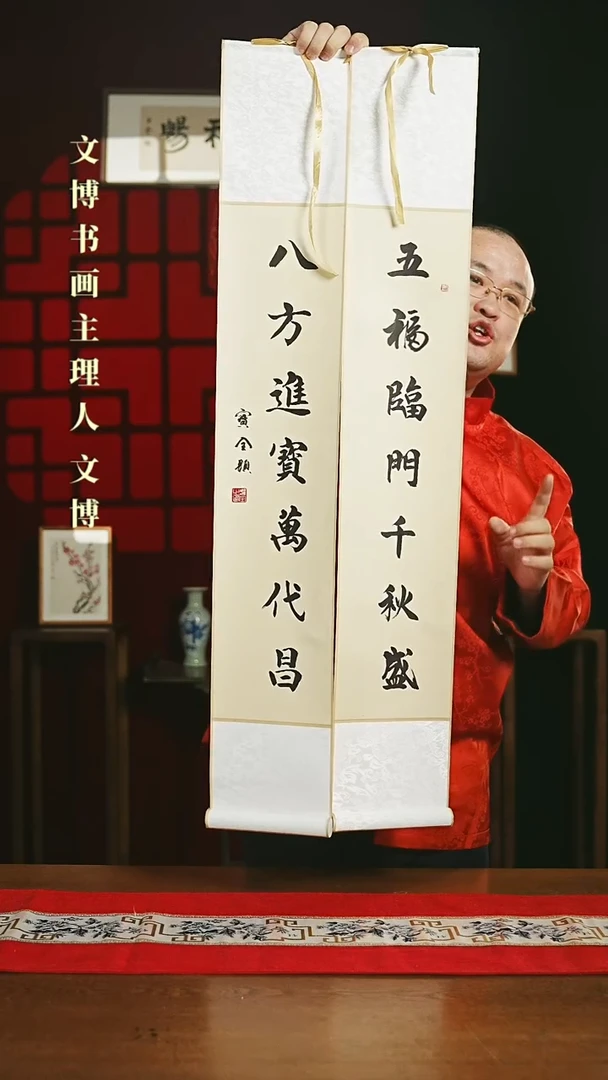 五福臨門千秋盛
八方進寶萬代昌
文博书画主理人 文博